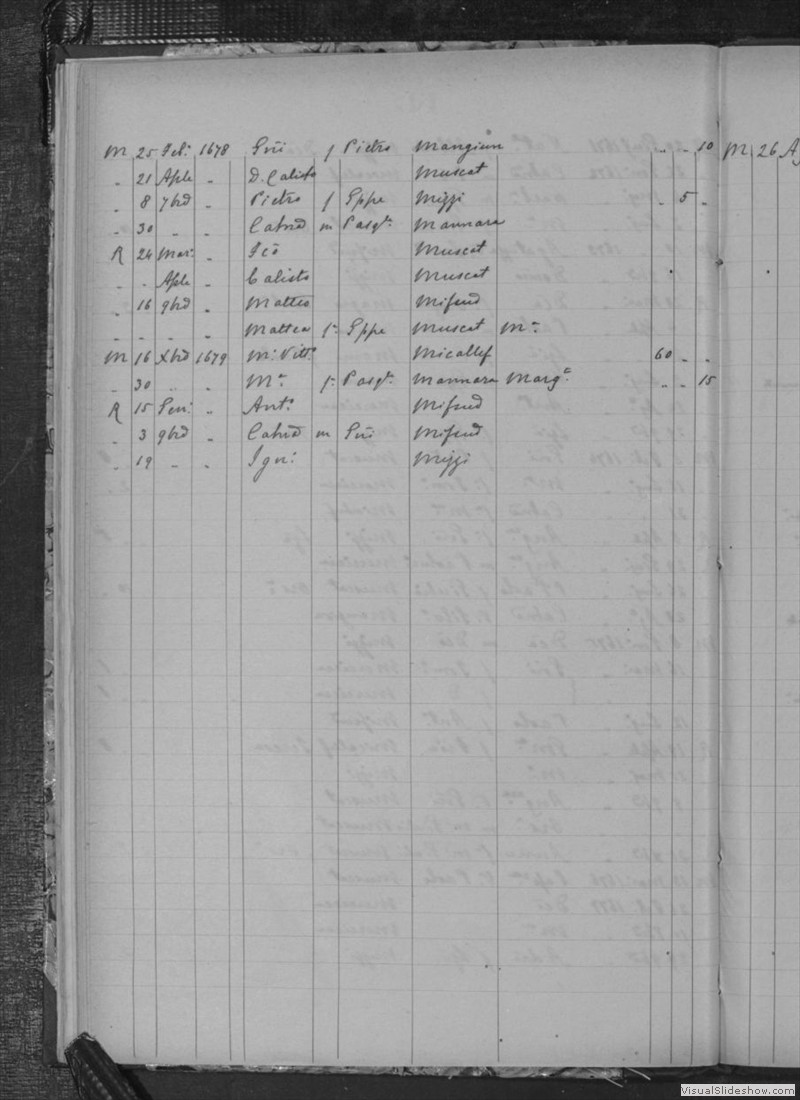 M 25 Feb: 1678 Gñi f Pietro Mangiun - - 10 M 26 Ag
- 21 Aple - D. Calisto Muscat
- 8 7bre - Pietro f Gppe Mizzi - 5 -
- 30 - - Catna m Pasqle Mannara
R 24 Mar: - Fco Muscat
- - Aple - Calisto Muscat
- 16 9bre - Matteo Mifsud
- - - - Mattea fa Gppe Muscat Ma
M 16 Xbre 1679 Ma: Vitta Micallef 60 - -
- 30 - - Ma fa Pasqle Mannara Marga - - 15
R 15 Gen: - Anto Mifsud
- 3 9bre - Catna m Gñi Mifsud
- 19 - - Ign: Mizzi
VisualSlideshow.com